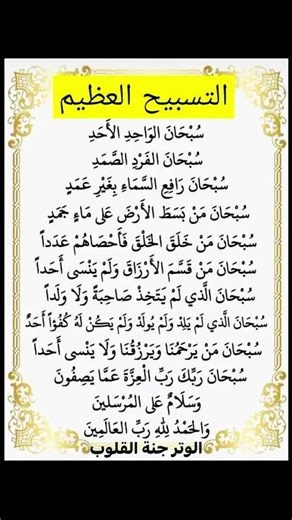 التسبيح العظيم
سُبْحَانَ الوَاحِدِ الأَحَدِ
سُبْحَانَ الفَرْدِ الصَّمَدِ
سُبْحَانَ رَافِعِ السَّمَاءِ بِغَيْرِ عَمَدٍ
سُبْحَانَ مَنْ بَسَطَ الأَرْضَ عَلى مَاءٍ جَمَدٍ
سُبْحَانَ مَنْ خَلَقَ الخَلْقَ فَأَحْصَاهُمْ عَدَداً
سُبْحَانَ مَنْ قَسَّمَ الأَرْزَاقَ وَلَمْ يَنْسَى أَحَداً
سُبْحَانَ الَّذي لَمْ يَتَّخِذْ صَاحِبَةً وَلَا وَلَداً
سُبْحَانَ الَّذي لَمْ يَلِدْ وَلَمْ يُولَدْ وَلَمْ يَكُنْ لَهُ كُفُوْاً أَحَدٌ
سُبْحَانَ مَنْ يَرْحَمُنَا وَيَرْزُقُنَا وَلَا يَنْسى أَحَداً
سُبْحَانَ رَبِّكَ رَبِّ العِزَّةَ عَمَّا يَصِفُونَ
وَسَلَامٌ عَلى المُرْسَلينَ
وَالحَمْدُ لِلّٰهِ رَبِّ العَالَمِينَ
الوتر جنة القلوب